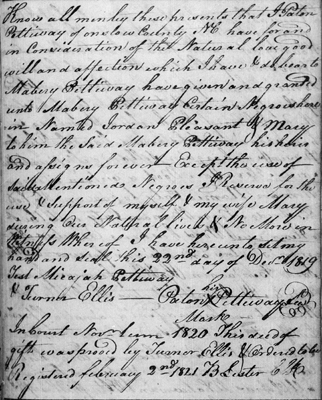 Know all men by these presents that I Paton
Pettiway of onslow County NC have for and
in Consideration of the Natural love good
will and affection which I have & do bear to
Mabery Pettiway have given and granted
unto Mabery Pettiway Certain Negroes here
in Named Jordan Pleasant & Macy
to him the Said Mabery Pettiway his heirs
and assigns for ever Except the use of
Said Mentioned Negroes I Reserve for the
use & Support of myself & my wife Mary
during our Natural lives & No More in
Witness Where of I have hereunto set my
hand and seal this 22nd day of Decr 1819
Test Micajah Pettiway his
& Turner Ellis Paton X Pettiway
Mark
In Court Nov Term 1820 This deed of
gift was proved by Turner Ellis & Ordered to be
Registered february 2nd 1821 B Lester